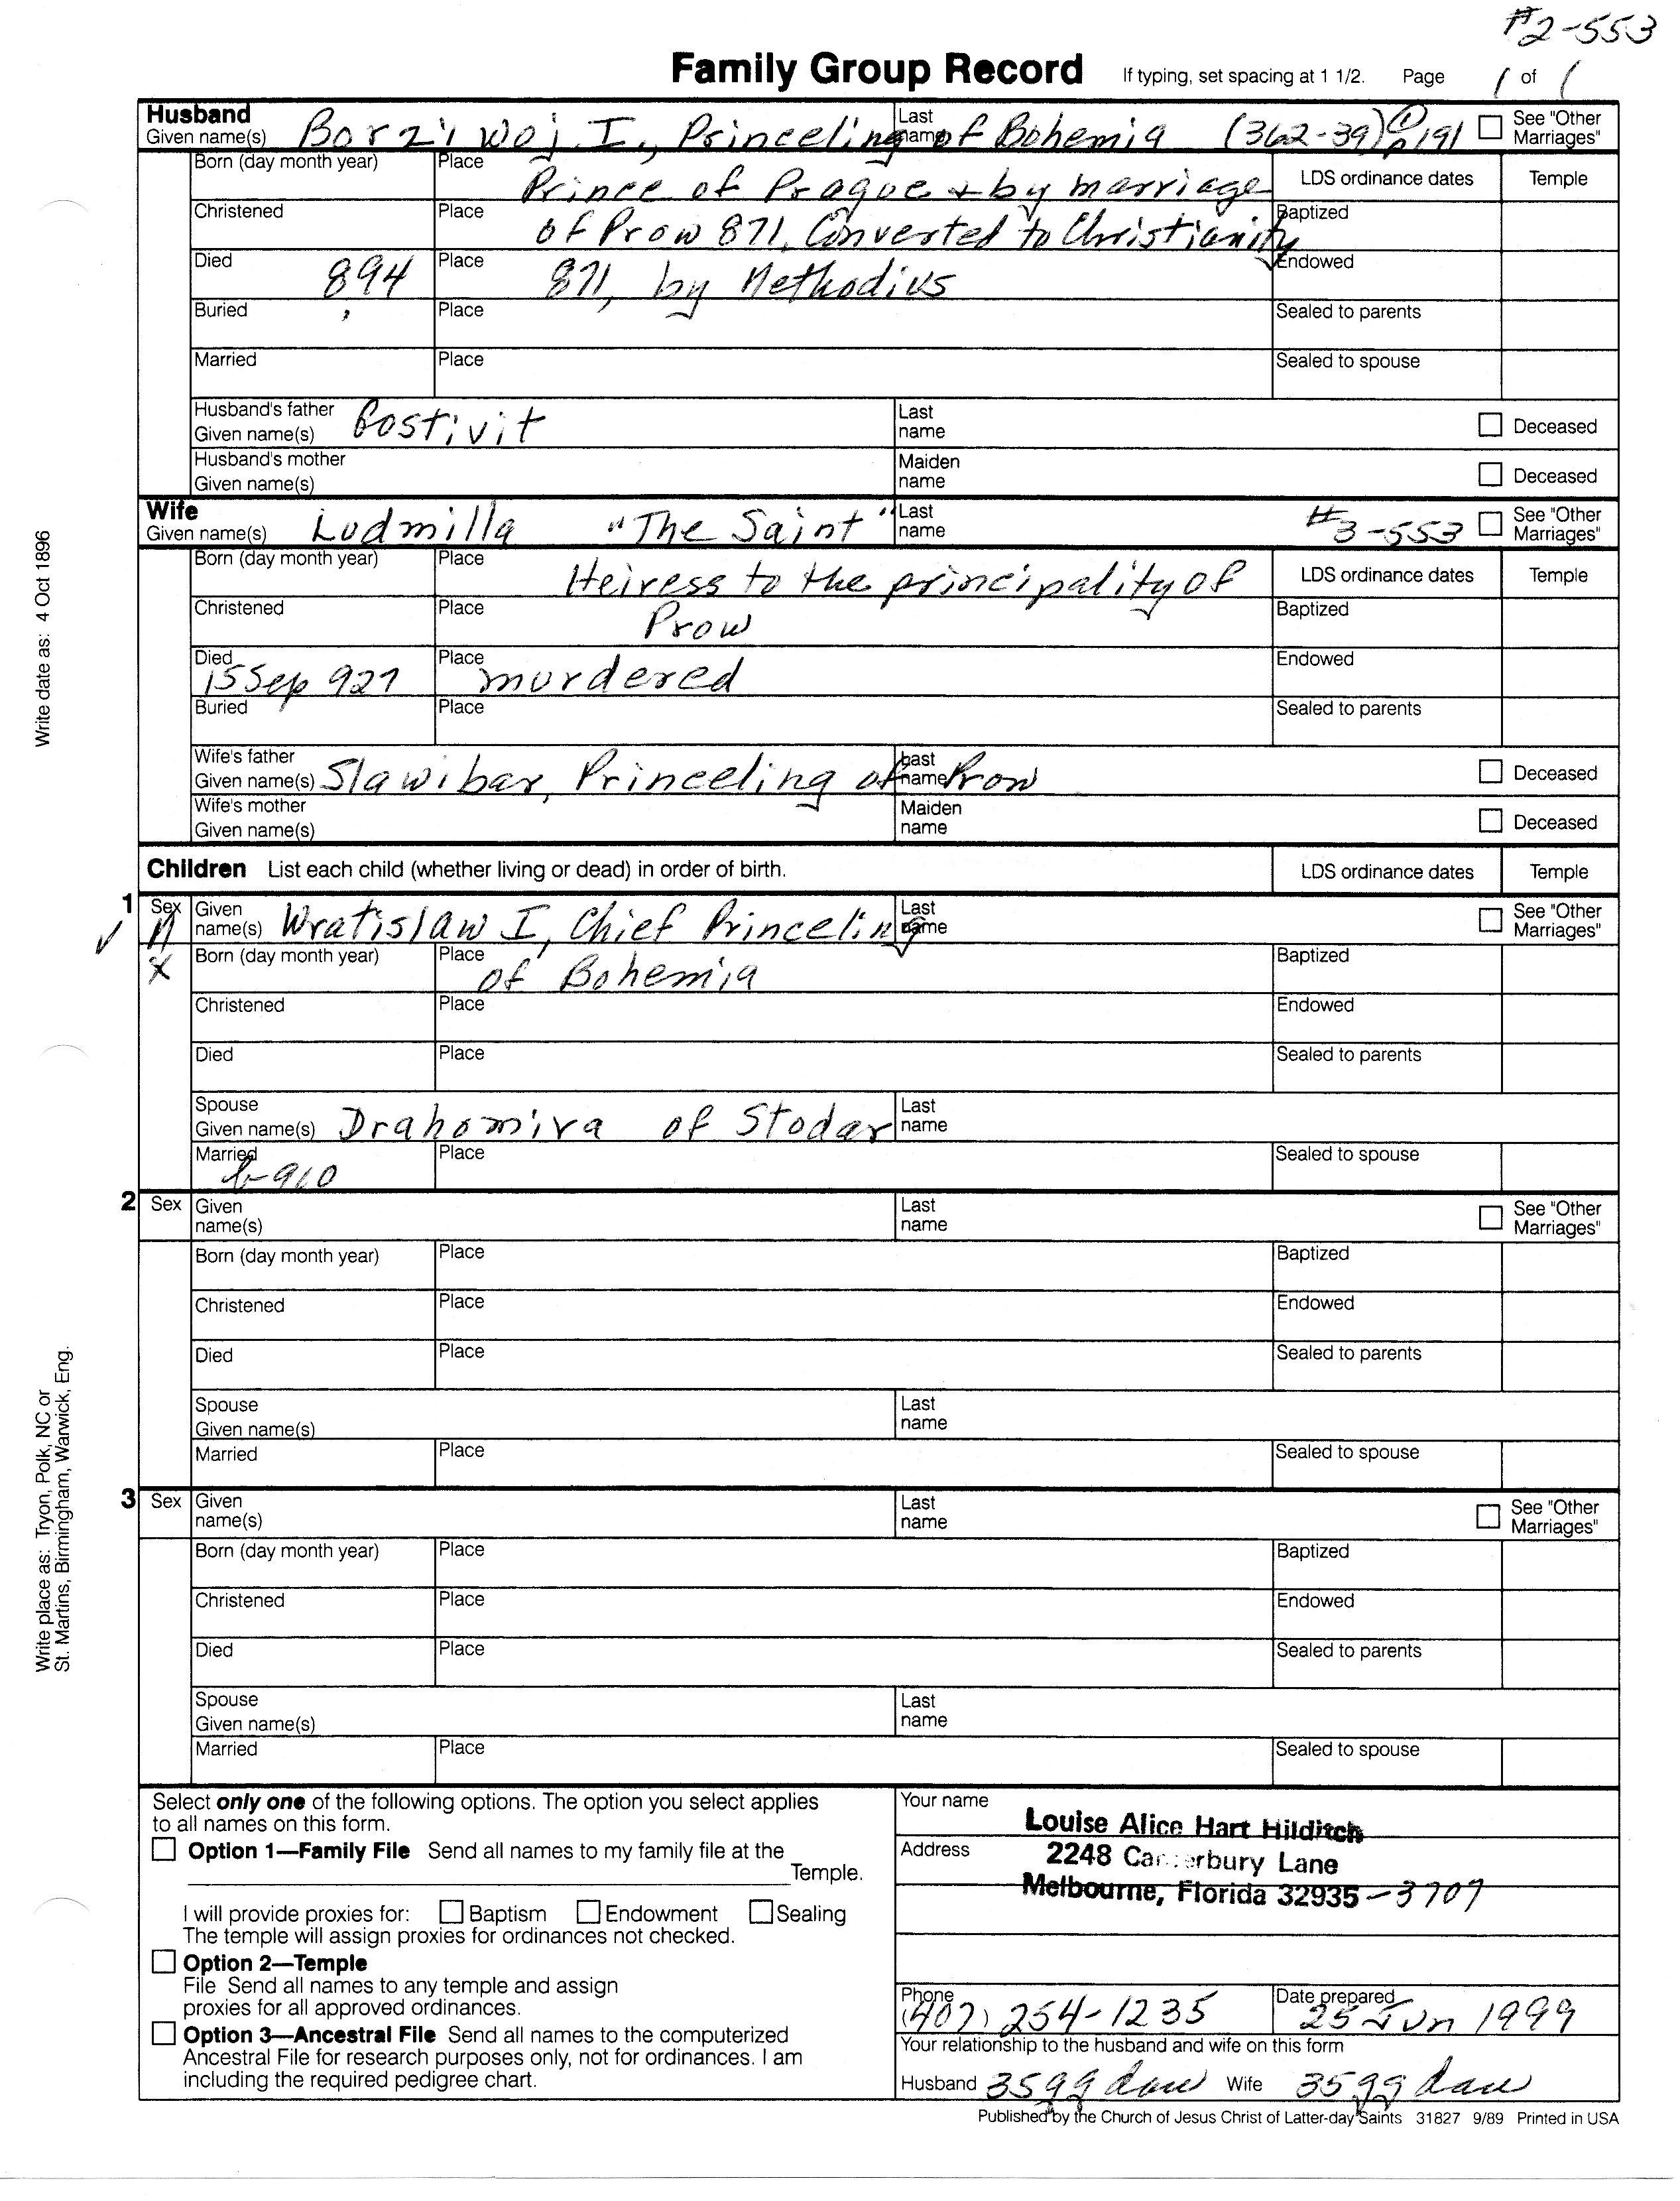 #2-553
Family Group Record If typing, set spacing at 1 1/2. Page 1 of 1
Husband
Given name(s) Borziwoj I., Princeling Last name of Bohemia (362-39) p 191 See "Other Marriages"
Born (day month year) Place Prince of Prague + by marriage LDS ordinance dates Temple
Christened Place of Prow 871, Converted to Christianity Baptized
Died 894 Place 871, by Methodius Endowed
Buried Place Sealed to parents
Married Place Sealed to spouse
Husband's father
Given name(s) Bostivit Last name Deceased
Husband's mother
Given name(s) Maiden name Deceased
Wife
Given name(s) Ludmilla "The Saint" Last name #3-553 See "Other Marriages"
Born (day month year) Place Heiress to the principality of LDS ordinance dates Temple
Christened Place Prow Baptized
Died 15 Sep 927 Place murdered Endowed
Buried Place Sealed to parents
Wife's father
Given name(s) Slawibar, Princeling of Last name Prow Deceased
Wife's mother
Given name(s) Maiden name Deceased
Children List each child (whether living or dead) in order of birth. LDS ordinance dates Temple
1 Sex M Given name(s) Wratislaw I, Chief Princeling Last name See "Other Marriages"
X Born (day month year) Place of Bohemia Baptized
Christened Place Endowed
Died Place Sealed to parents
Spouse
Given name(s) Drahomira of Stodar Last name
Married b-910 Place Sealed to spouse
2 Sex Given name(s) Last name See "Other Marriages"
Born (day month year) Place Baptized
Christened Place Endowed
Died Place Sealed to parents
Spouse
Given name(s) Last name
Married Place Sealed to spouse
3 Sex Given name(s) Last name See "Other Marriages"
Born (day month year) Place Baptized
Christened Place Endowed
Died Place Sealed to parents
Spouse
Given name(s) Last name
Married Place Sealed to spouse
Write date as: 4 Oct 1896
Write place as: Tryon, Polk, NC or
St. Martins, Birmingham, Warwick, Eng.
Select only one of the following options. The option you select applies
to all names on this form.
Option 1—Family File Send all names to my family file at the
Temple.
I will provide proxies for: Baptism Endowment Sealing
The temple will assign proxies for ordinances not checked.
Option 2—Temple
File Send all names to any temple and assign
proxies for all approved ordinances.
Option 3—Ancestral File Send all names to the computerized
Ancestral File for research purposes only, not for ordinances. I am
including the required pedigree chart.
Your name Louise Alice Hart Hilditch
Address 2248 Canterbury Lane
Melbourne, Florida 32935-3707
Phone (407) 254-1235 Date prepared 25 Jun 1999
Your relationship to the husband and wife on this form
Husband 35gg dau Wife 35gg dau
Published by the Church of Jesus Christ of Latter-day Saints 31827 9/89 Printed in USA